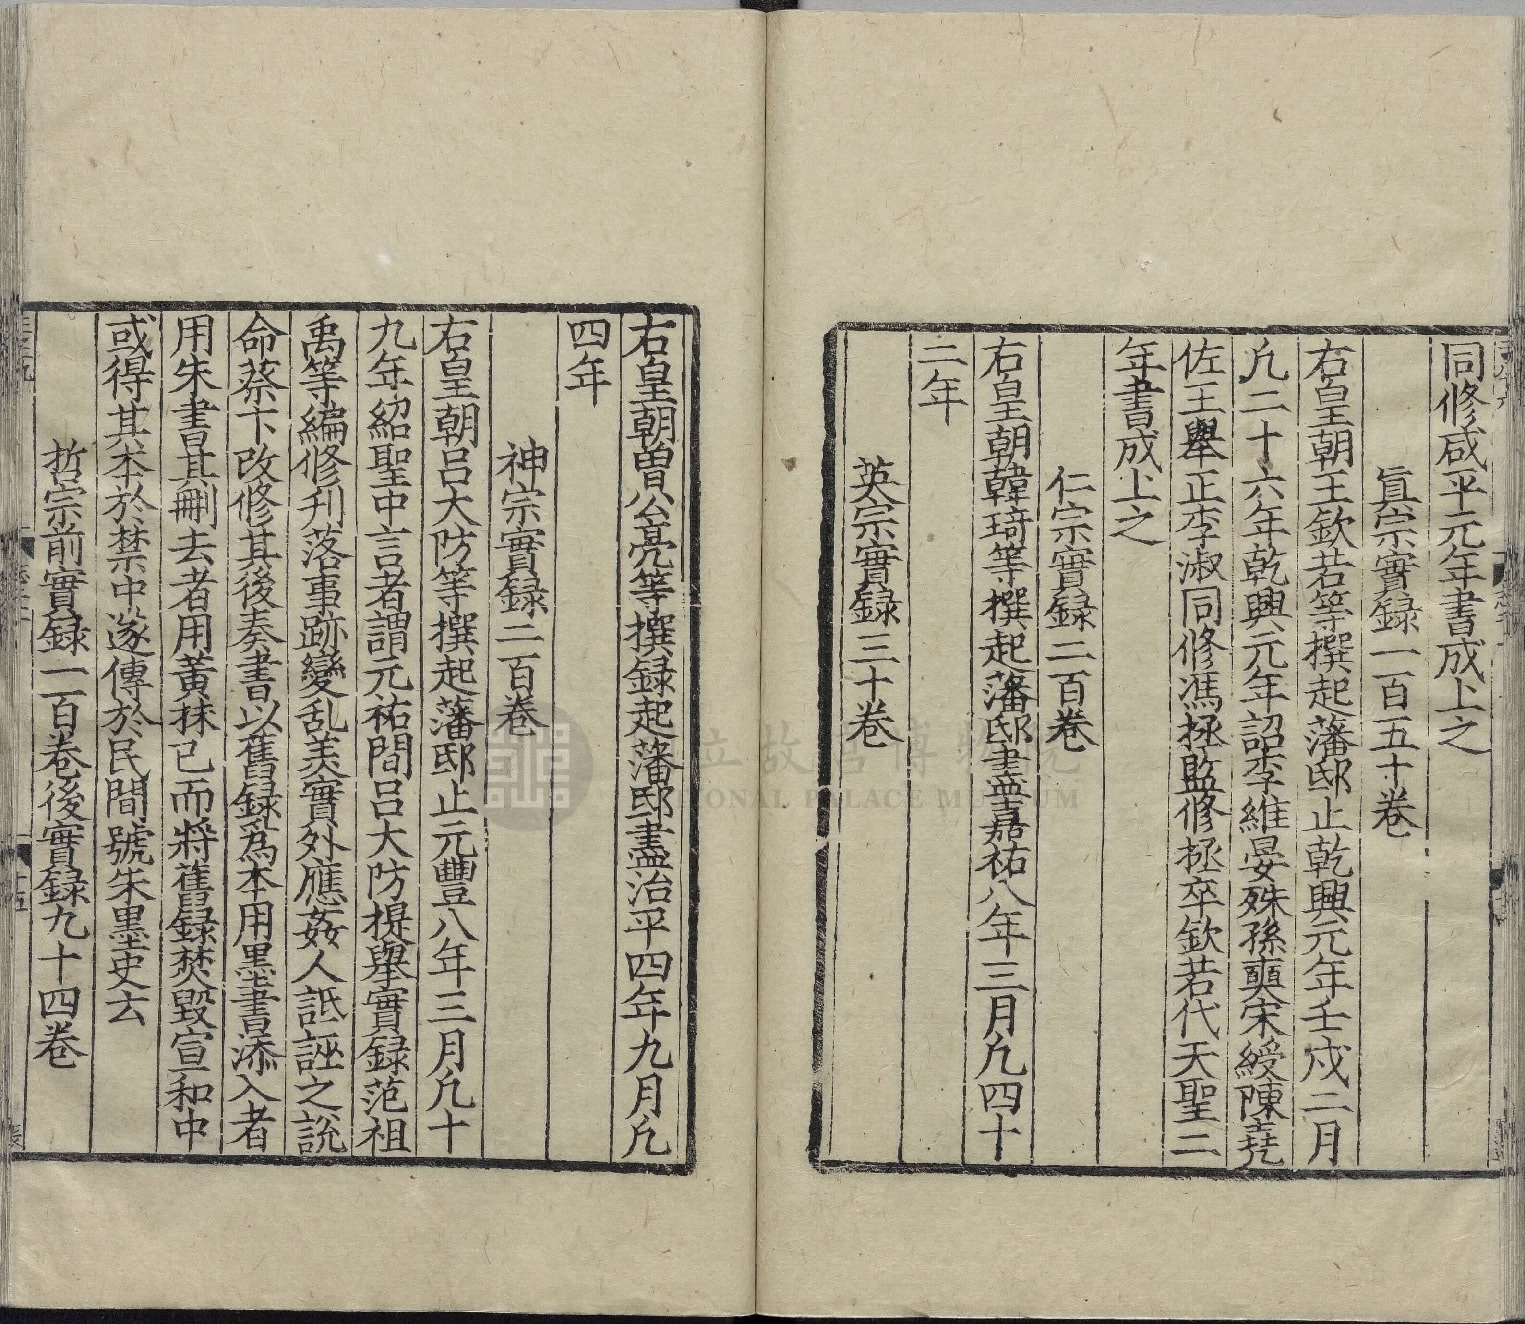 同修咸平元年書成上之
真宗實録一百五十卷
右皇朝王欽若等撰起藩邸止乾興元年壬戌二月
凢二十六年乾興元年詔李維晏殊孫奭宋綬陳堯
佐王舉正李淑同修馮拯監修拯卒欽若代天聖二
年書成上之
仁宗實録二百卷
右皇朝韓琦等撰起藩邸盡嘉祐八年三月凢四十
二年
英宗實録三十卷
右皇朝曽公亮等撰録起藩邸盡治平四年九月凢
四年
神宗實録二百卷
右皇朝吕大防等撰起藩邸止元豐八年三月凢十
九年紹聖中言者謂元祐間吕大防提舉實録范祖
禹等編修刋落事跡變乱美實外應姦人詆誣之說
命蔡卞改修其後奏書以舊録爲本用墨書添入者
用朱書其刪去者用黄抹已而將舊録焚毀宣和中
或得其本於禁中遂傳於民間號朱墨史云
哲宗前實録一百卷後實録九十四卷
國立故宮博物院
NATIONAL PALACE MUSEUM